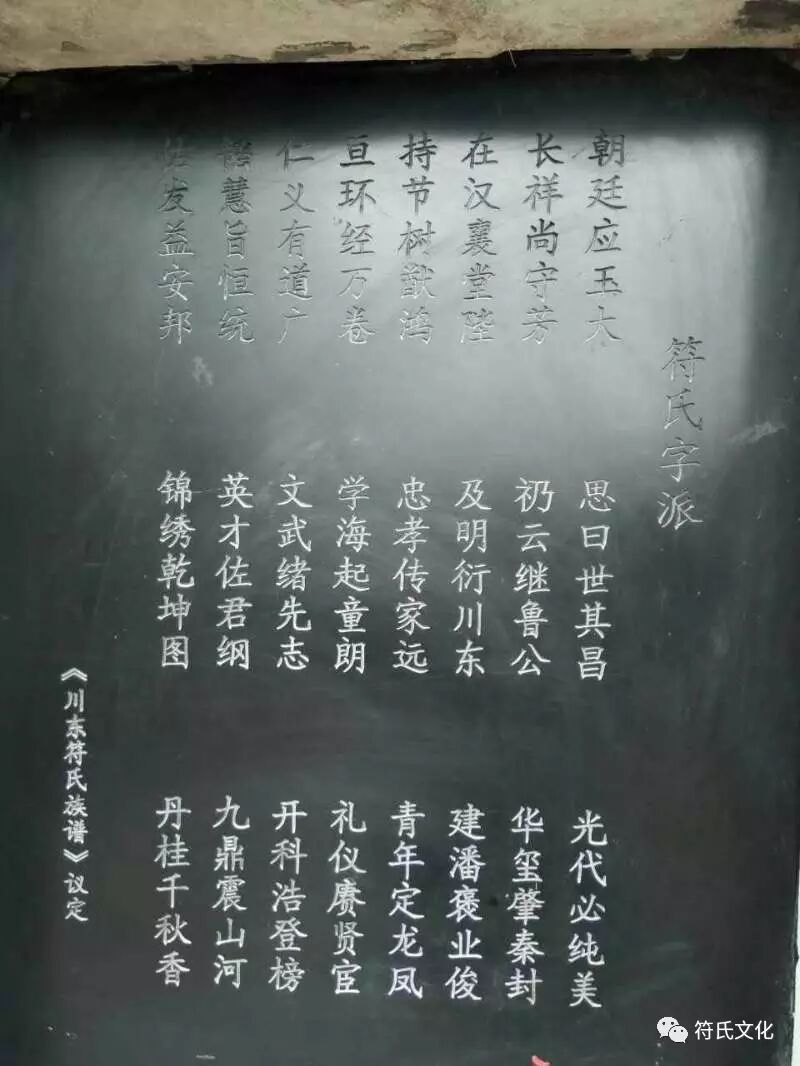 符氏字派
朝廷应玉大
思曰世其昌
光代必纯美
长祥尚守芳
礽云继鲁公
华玺肇秦封
在汉襄堂陛
及明衍川东
建潘褒业俊
持节树猷鸿
忠孝传家远
青年定龙凤
亘环经万卷
学海起童朗
礼仪赓贤宦
仁义有道广
文武绪先志
开科浩登榜
慧旨恒统
英才佐君纲
九鼎震山河
发益安邦
锦绣乾坤图
丹桂千秋香
《川东符氏族谱》议定
符氏文化